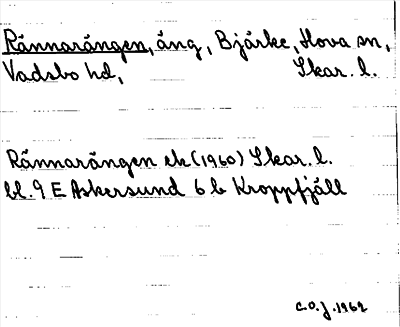 Rännarängen, äng, Bjärke, Hova sn,
Vadsbo hd, Skar. l.
Rännarängen ek (1960) Skar. l.
bl. 9 E Askersund 6 b Kroppfjäll
C.O.J. 1962